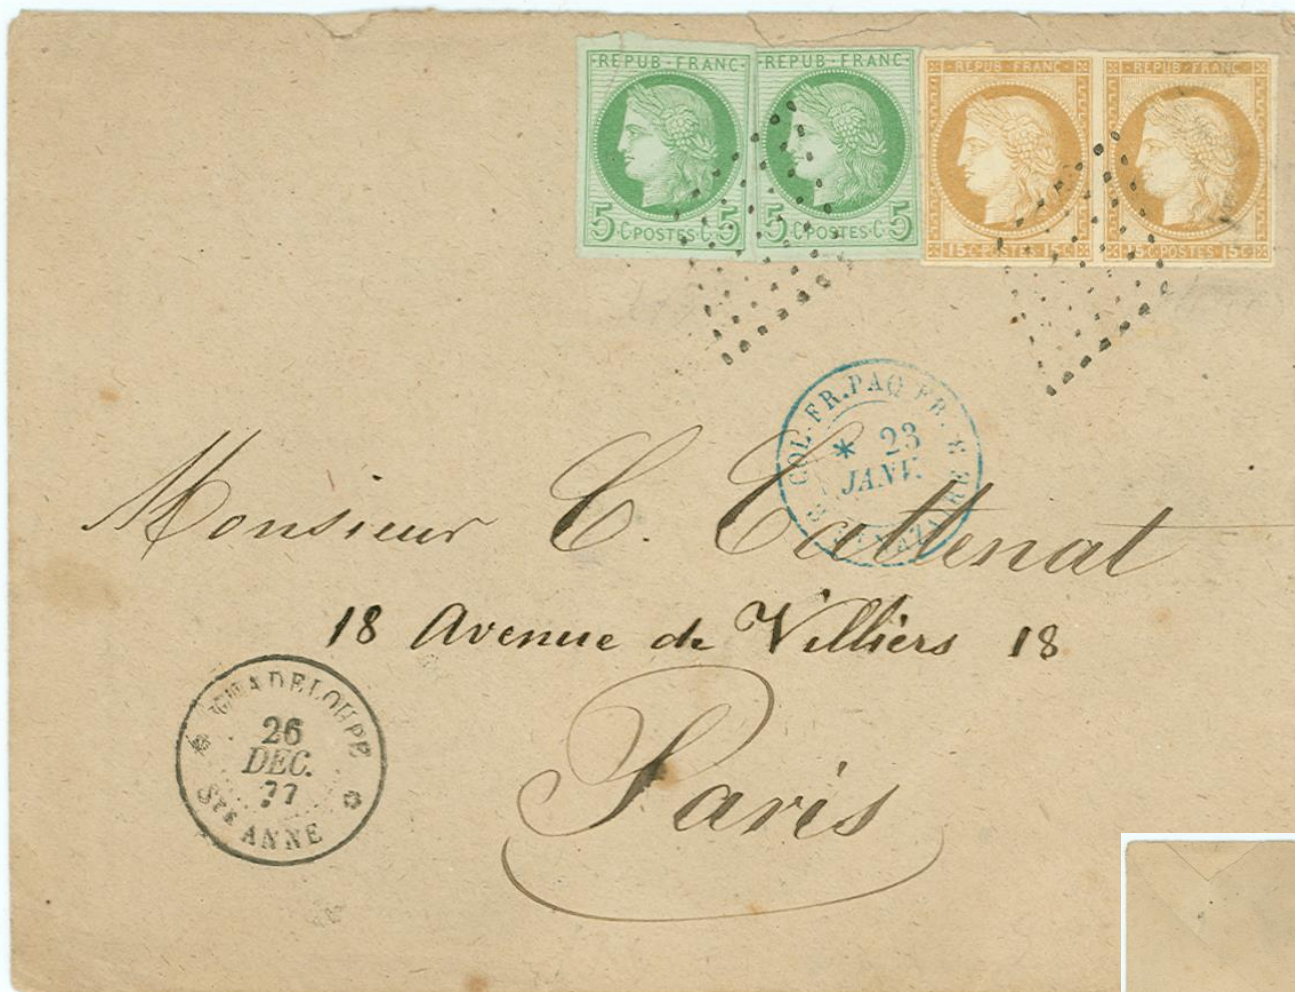 REPUB·FRANC
5·C·POSTES·C·5
REPUB·FRANC
5·C·POSTES·C·5
REPUB·FRANC
15·C·POSTES·15·C
REPUB·FRANC
15·C·POSTES·15·C
COL.FR.PAQ.FR.
* 23
JANV.
NAZAIRE
Monsieur C. Cattenat
18 Avenue de Villiers 18
Paris
GUADELOUPE
26
DEC.
77
Ste ANNE